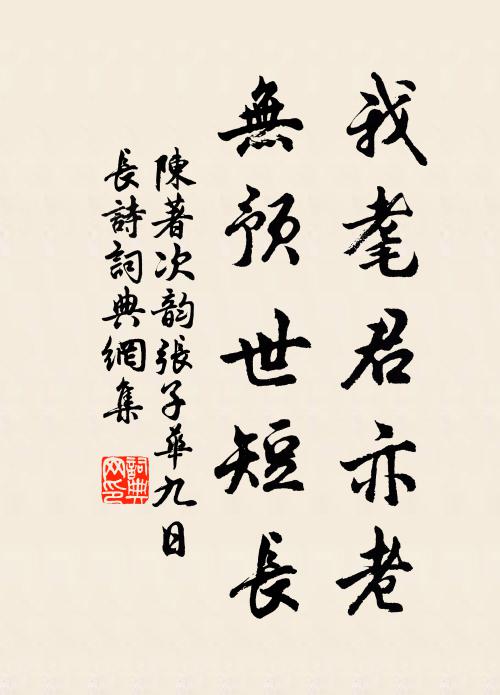 我耄君亦老
無預世短長
陳著次韵張子華九日
長詩詞典網集
詞典
网印